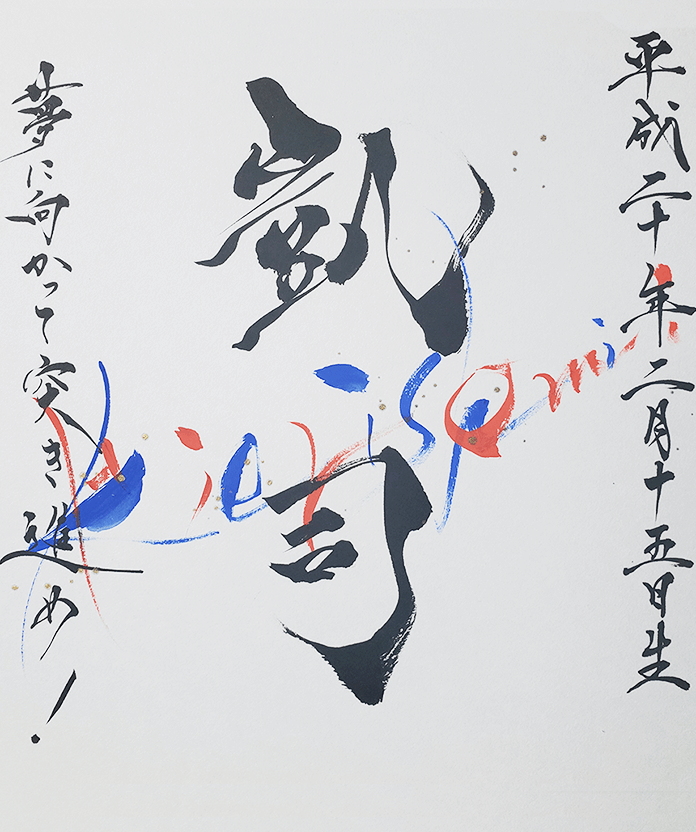 平成二十年二月十五日生
凱司
夢に向かって突き進め!